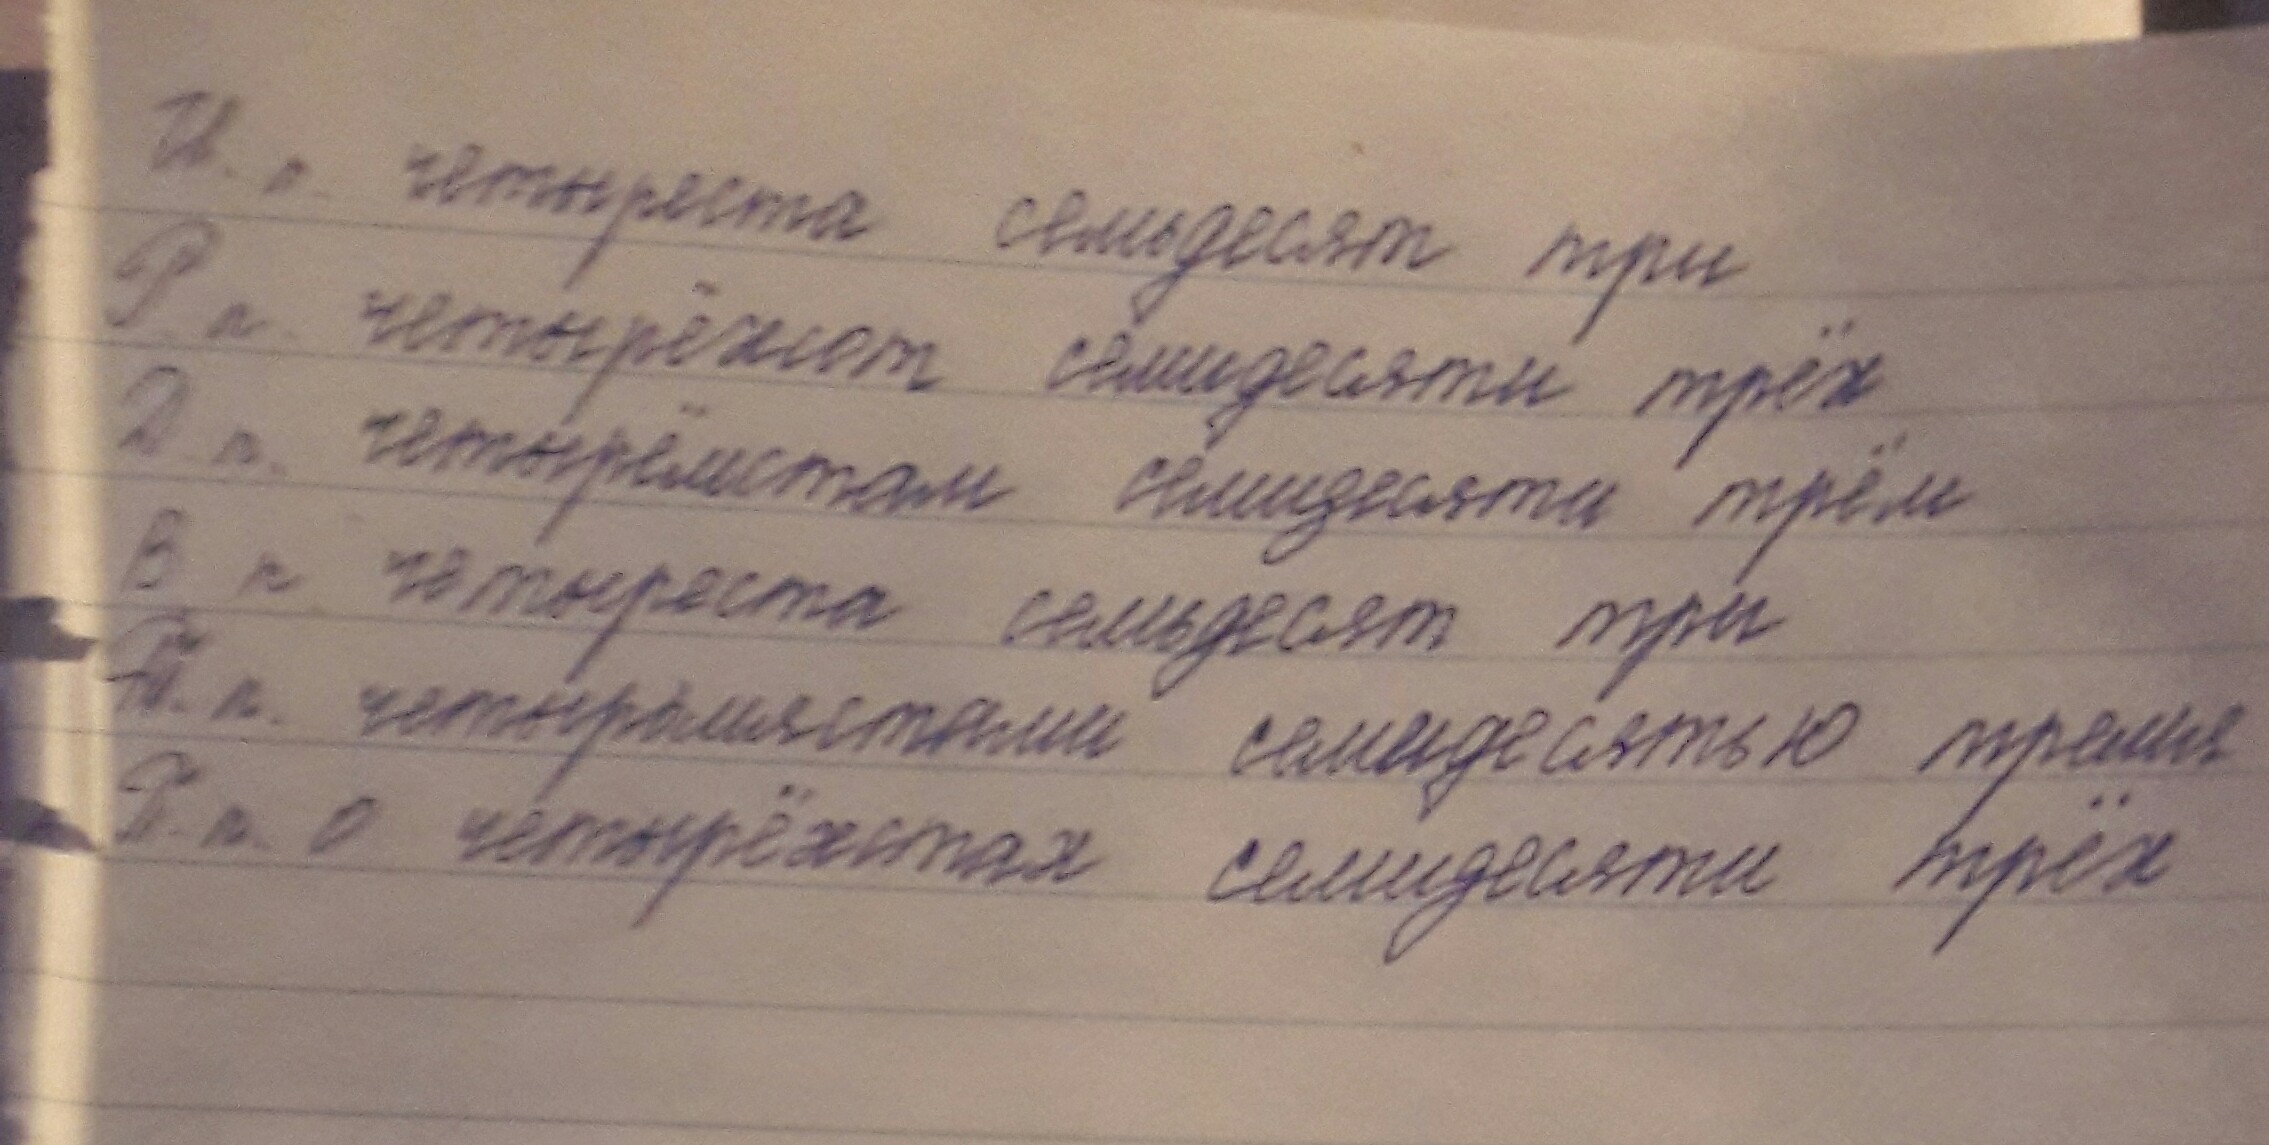 И. п. четыреста семьдесят три
Р. п. четырёхсот семидесяти трёх
Д. п. четырёмстам семидесяти трём
В п четыреста семьдесят три
Т. п. семидесятью тремя
П. п. о четырёхстах семидесяти трёх